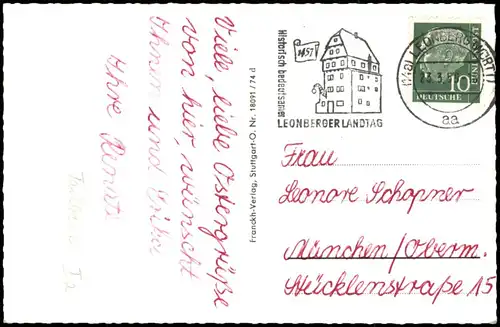 Viele, liebe Ostergrüße
von hier, wünscht
Ihnen und Erika
Ihre Renate
Franckh-Verlag, Stuttgart-O. Nr. 18091/74 d
Historisch bedeutsamer
1457
LEONBERGER LANDTAG
(14a) LEONBERG (WÜRTT)
23.3.5
aa
DEUTSCHE
10
Frau
Leonore Schapner
München/Oberm.
Stücklenstraße 15